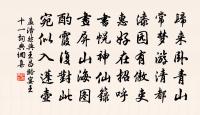 歸來卧青山
常夢游清都
漆園有傲吏
惠好在招呼
書幌神仙籙
畫屏山海圖
酌霞復對此
宛似入蓬壺
孟浩然與王昌齡宴王
十一詞典網書